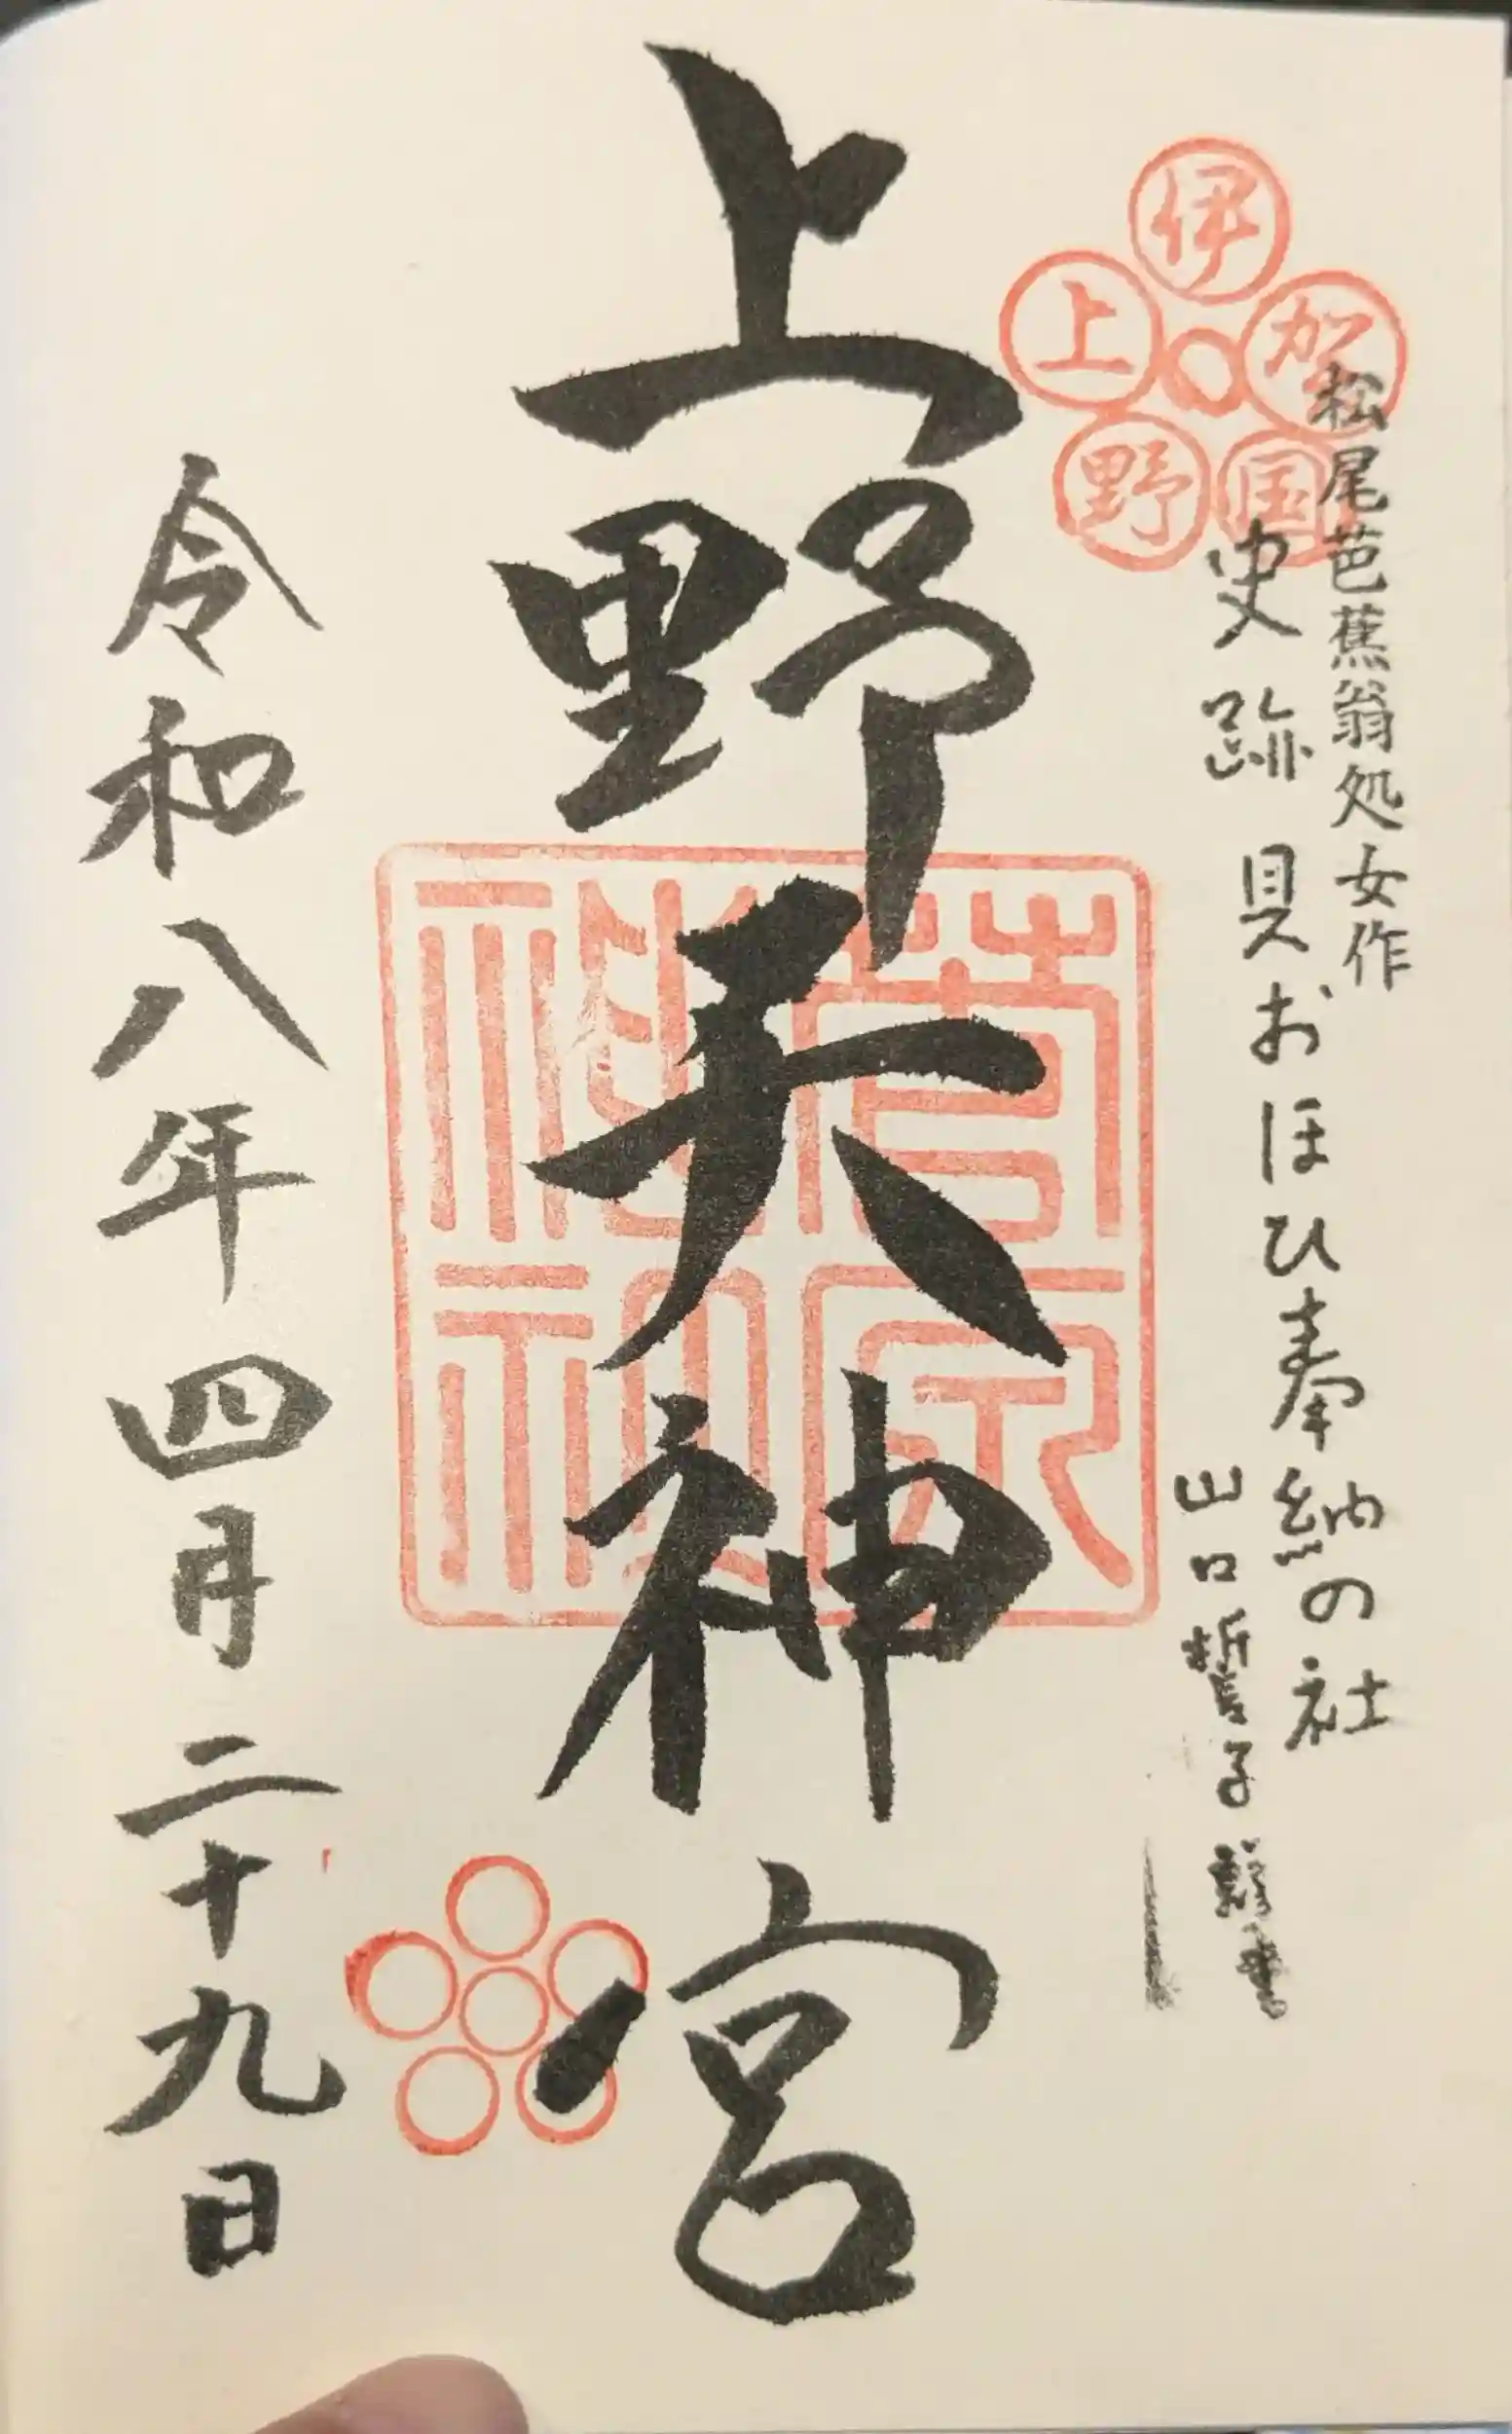 伊賀国野上
松尾芭蕉翁処女作
史跡 貝おほひ奉納の社
山口誓子
上野天神宮
菅原神社
令和八年四月二十九日